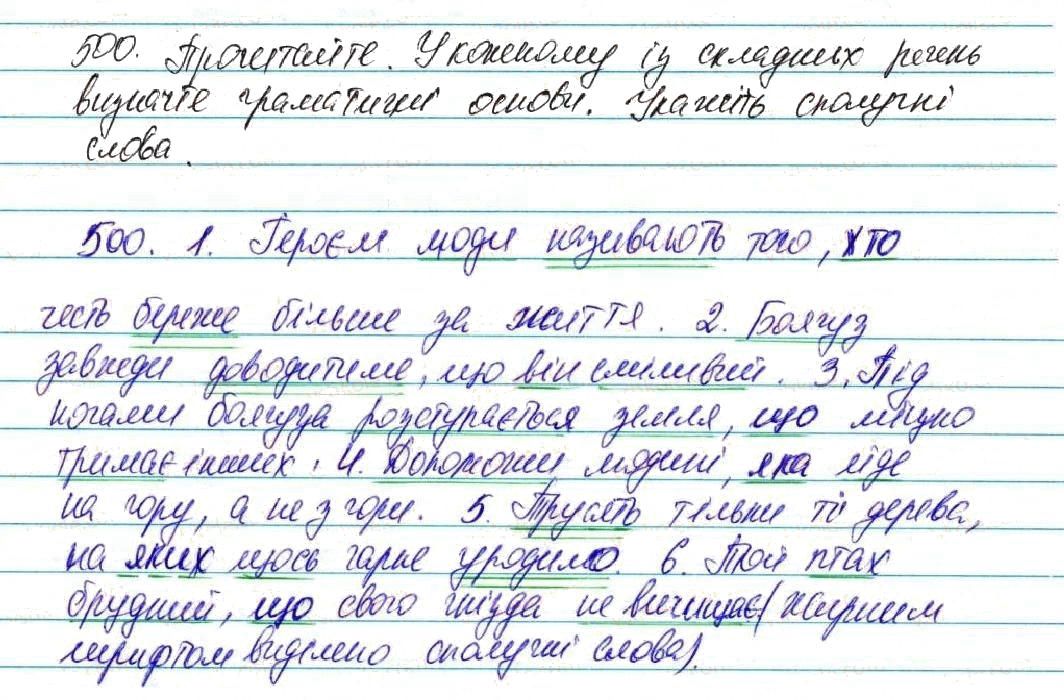 500. Прочитайте. У кожному із складних речень
визначте граматичні основи. Укажіть сполучні
слова.
500. 1. Героєм люди називають того, хто
честь береже більше за життя. 2. Боягуз
завжди доводитиме, що він сміливий. 3. Під
ногами боягуза розступається земля, що міцно
тримає інших. 4. Допоможи людині, яка йде
на гору, а не з гори. 5. Трусять тільки ті дерева,
на яких щось гарне уродило. 6. Той птах
брудний, що свого гнізда не вичищає (жирним
шрифтом виділено сполучні слова).